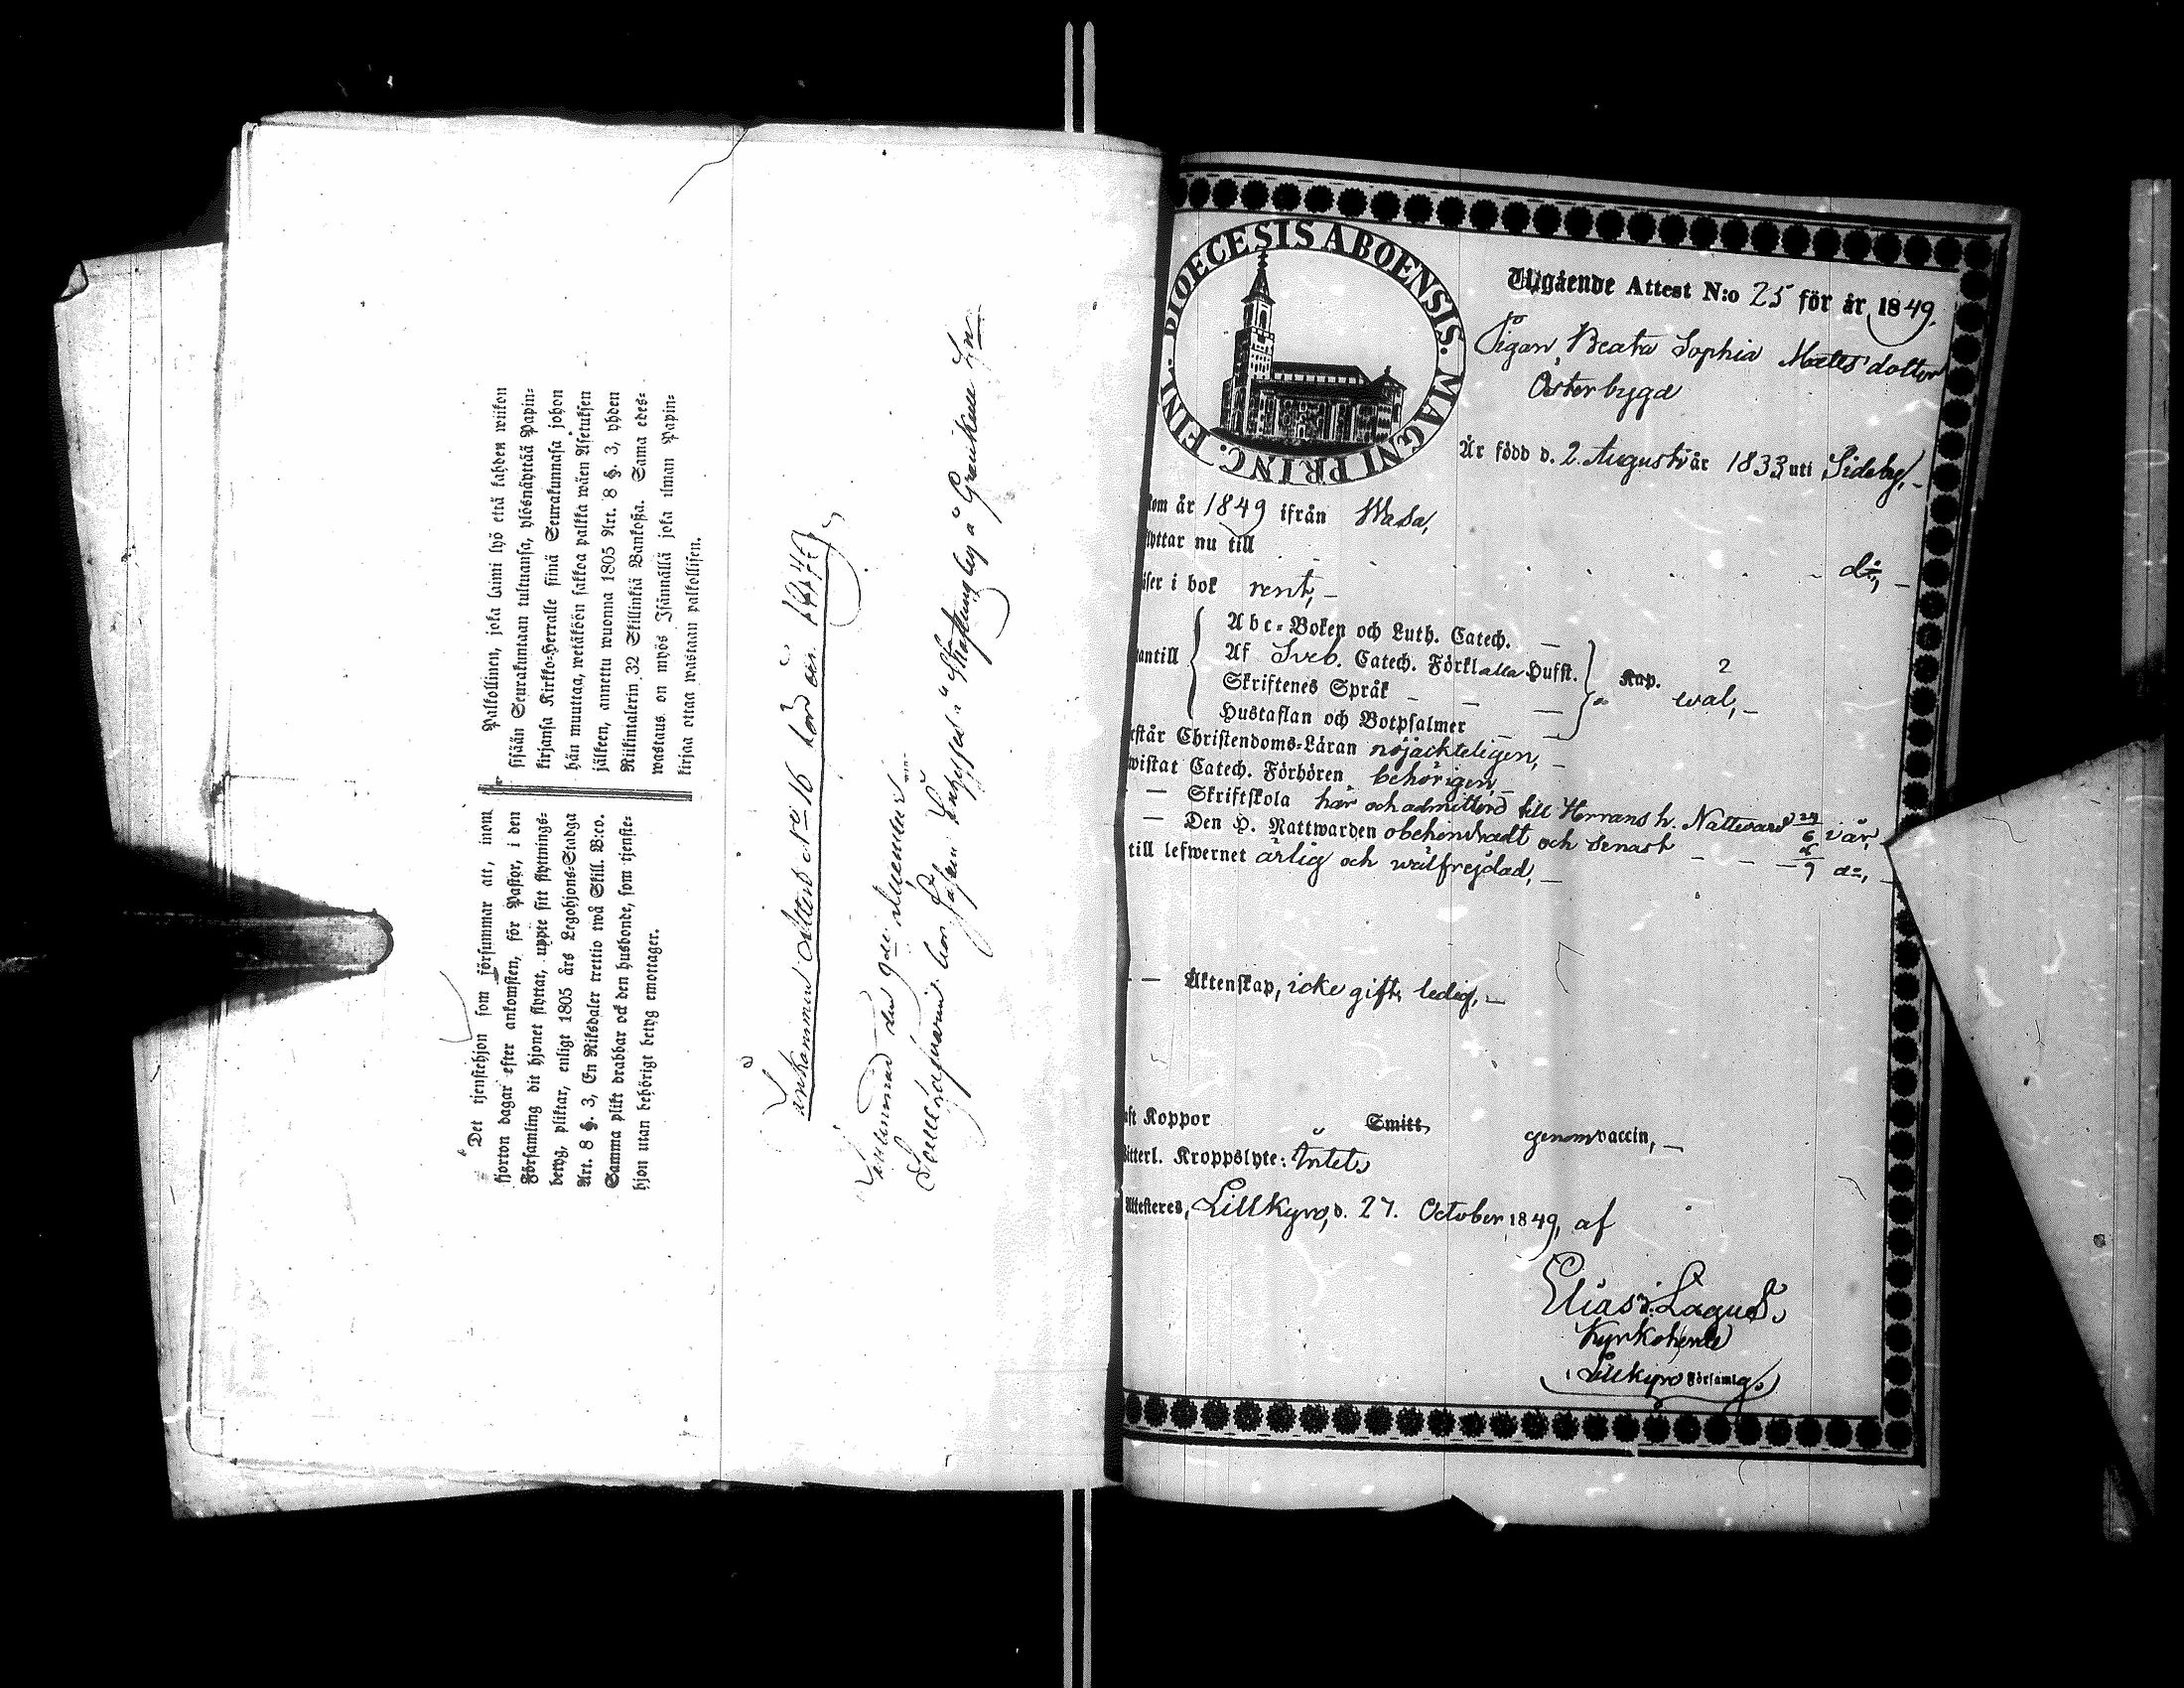 Det tjenstehjon som försummar att, inom
fjorton dagar efter ankomsten, för Pastor, i den
Församling dit hjonet flyttat, uppte sitt flyttnings-
betyg, pliktar, enligt 1805 års Legohjons-Stadga
Art. 8 §. 3, En Riksdaler trettio twå Skill. B:co.
Samma plikt drabbar ock den husbonde, som tjenste-
hjon utan behörigt betyg emottager.
Palkollinen, joka laimi lyö että kahden wiikon
sisään Seurakuntaan tultuansa, ylösnäyttää Papin-
kirjansa Kirkko-Herralle siinä Seurakunnasa johon
hän muuttaa, wetäköön sakkoa palkka wäen Asetuksen
jälkeen, annettu wuonna 1805 Art. 8 §. 3, yhden
Riikintalerin 32 Skillinkiä Bankosa. Sama edes-
wastaus on myös Isännällä joka ilman Papin-
kirjaa ottaa wastaan palkollisen.
Inkommen Attest No 16 för år 1849
den 9de
DIOECESIS ABOENSIS. MAGNI PRINC. FINL.
Utgående Attest N:o 25 för år 1849.
Pigan, Beata Sophia Matts dotter
Österbygd
Är född d. 2. Augusti år 1833 uti Sideby, -
kom år 1849 ifrån Wasa,
flyttar nu till d:o, -
läser i bok rent, -
Abc-Boken och Luth. Catech. -
Af Sveb. Catech. Förkl alla Hufst.
antill Skriftenes Språk - - - Kap. 2 wäl, -
Hustaflan och Botpsalmer - -
Förstår Christendoms-Läran nöjachteligen, -
bewistat Catech. Förhören behörigen -
- - Skriftskola här och admitterad till Herrans h. Nattward 24/6 i år,
- Den H. Nattwarden obehindradt och senast - - - /9 d:o, -
till lefwernet ärlig och wälfrejdad, -
- - Äktenskap, icke gift, ledig, -
haft Koppor Smitt, genom vaccin, -
Witterl. Kroppslyte: Intet,
Attesteres, Lillkyro, d. 27. October 1849, af
Elias Lagus.
Kyrkoherde
i Lillkyro Församlg.